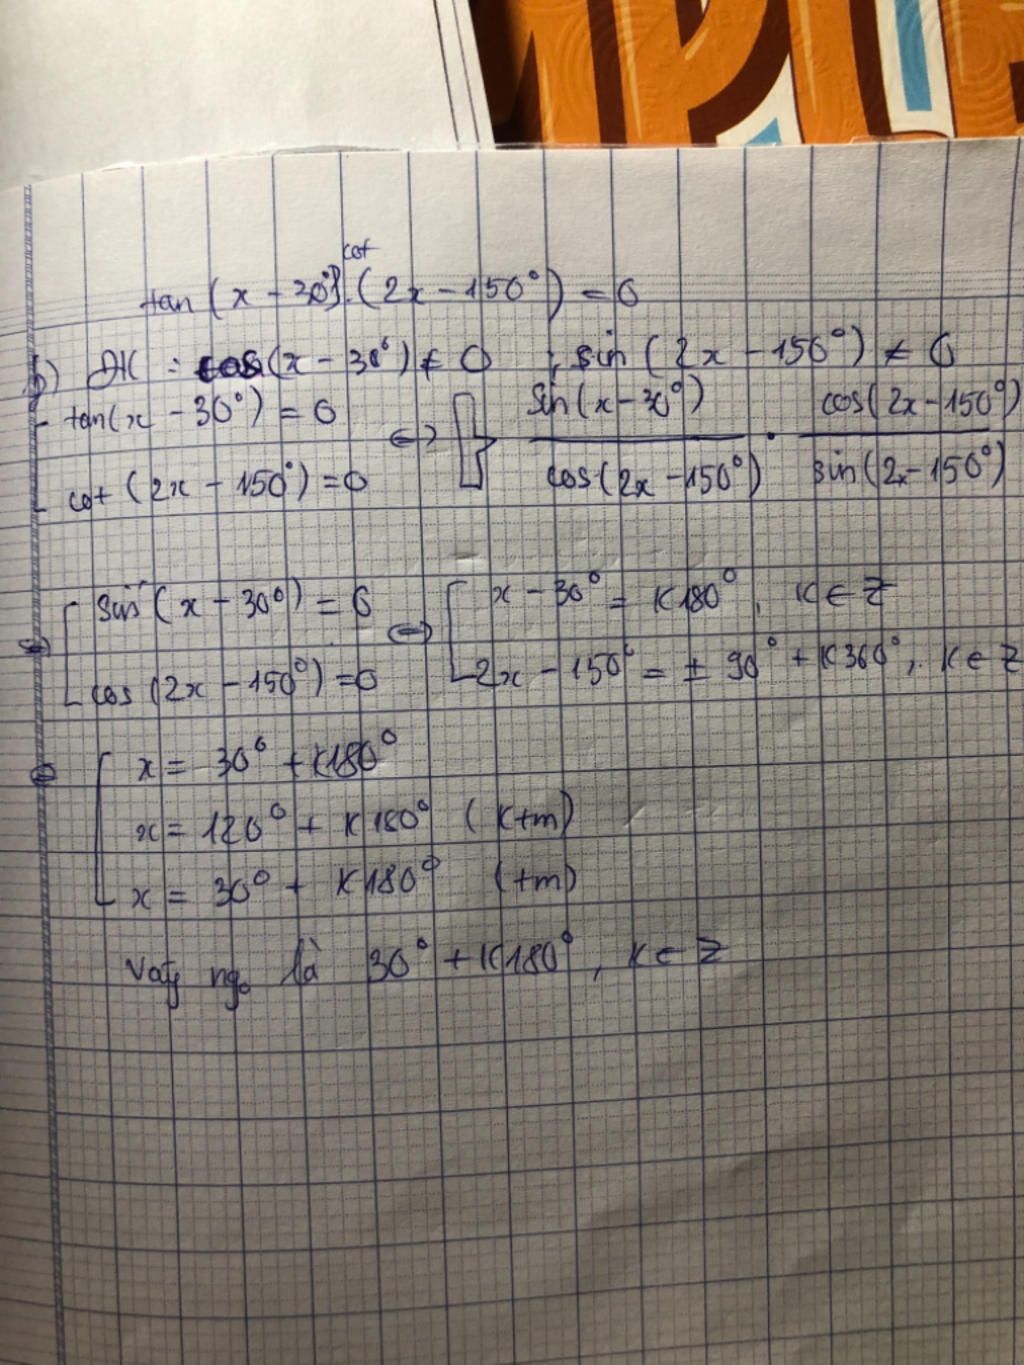 cot
tan (x - 30°).(2x - 150°) = 0
b) ĐK : cos(x - 30°) ≠ 0 ; sin (2x - 150°) ≠ 0
[ tan(x - 30°) = 0
cot (2x - 150°) = 0
<=> [ sin(x - 30°) / cos(2x - 150°) . cos(2x - 150°) / sin(2x - 150°)
<=> [ sin (x - 30°) = 0
cos (2x - 150°) = 0
<=> [ x - 30° = K180°, K ∈ Z
2x - 150° = ± 90° + K360°, K ∈ Z
<=> [ x = 30° + K180°
x = 120° + K180° (K+m)
x = 30° + K180° (t/m)
Vậy ngo là 30° + K180°, K ∈ Z